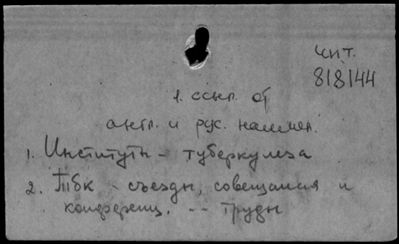 чит.
818144
1. ссыл. от
англ. и рус. наимен.
1. Институты - туберкулеза
2. Тбк - съезды, совещания и
конференц. -- Труды